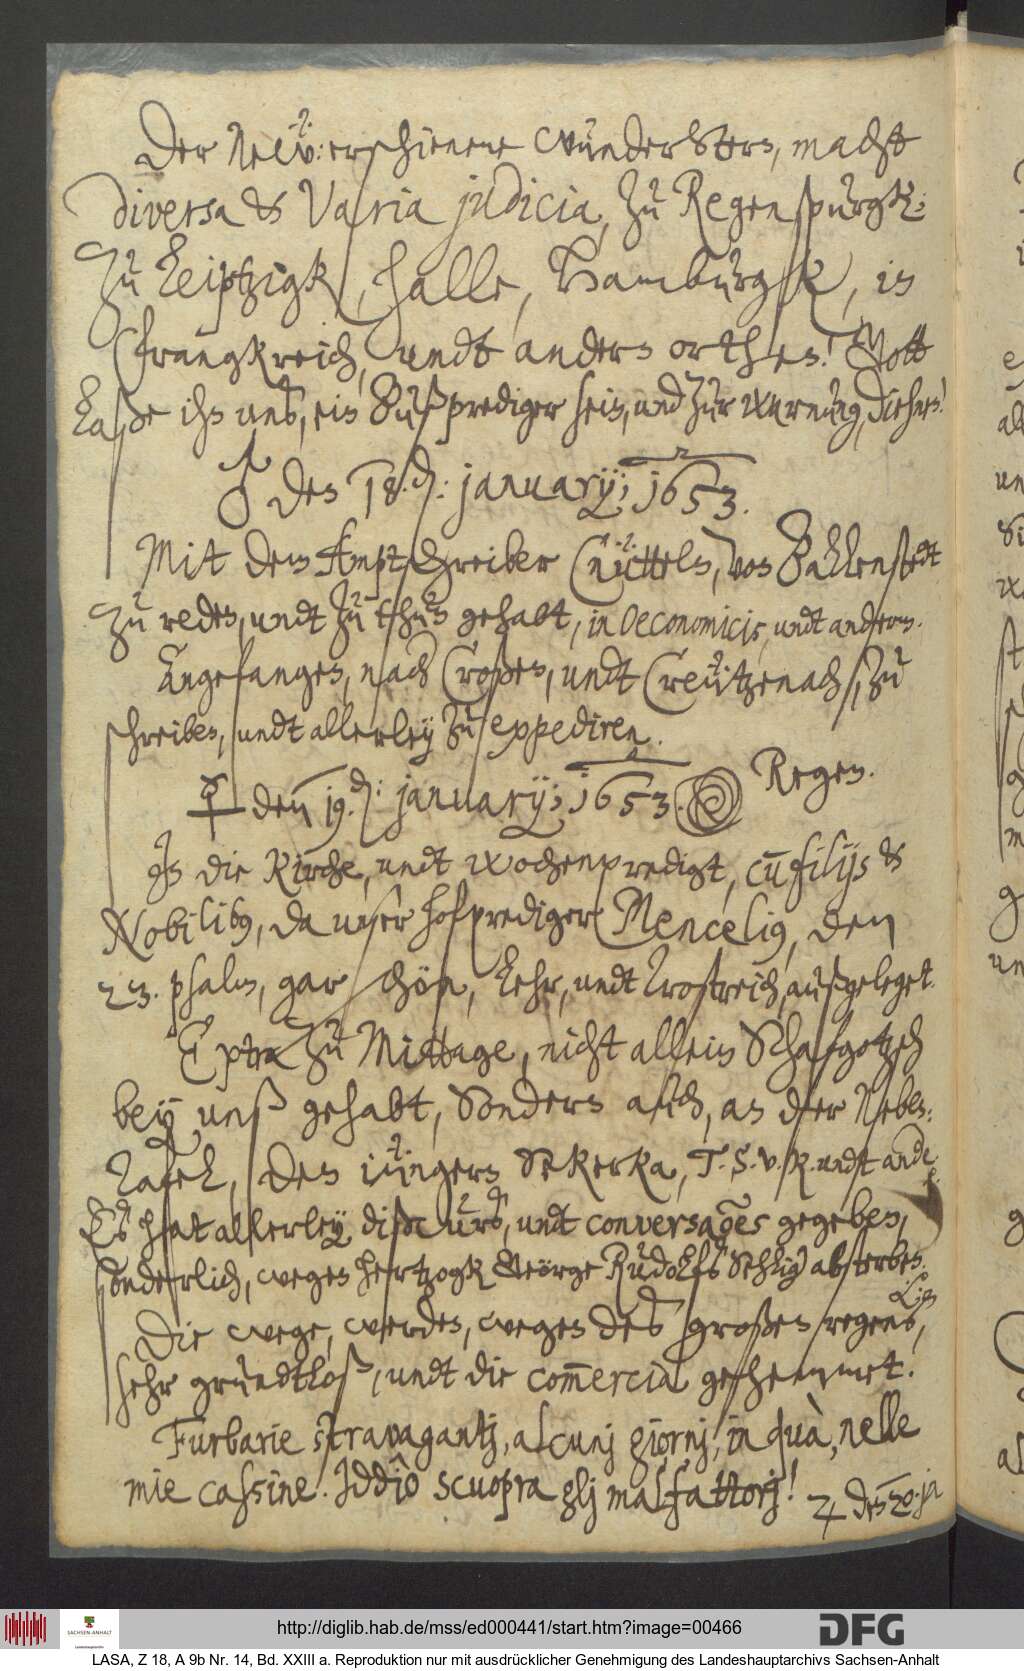 Der Neẅ: erschienene wunderstern, macht
diversa & Varia judicia, zu Regenspurgk:
zu Leiptzigk, Halle, Hamburgk, in
Franckreich, undt andern orthen! Gott
Laße ihn unß, ein Bußprediger sein, und zur warnung, dienen!
♂ den 18. d: january; 1653.
Mit dem Amptschreiber Güttels, von Ballenstedt
zu reden, undt zu thun gehabt, in Oeconomicis, undt andern.
Angefangen, nach Croßen, undt Creützenach, zu
schreiben, undt allerley zu expediren.
☿ den 19. d: january; 1653. Regen.
In die Kirche, undt wochenpredigt, cū filijs &
Nobilibus, da unser hofprediger Mencelius, den
23. psalm, gar schön, Lehr, undt trostreich, außgeleget.
Extra zu Mittage, nicht allein Schafgotsch
bey unß gehabt, sondern auch, an der Neben:
Tafel, den jüngern Sekerka, T. S. v. R. undt ande
Es hat allerley dißcurß, undt conversaões gegeben,
sonderlich, wegen Hertzogk George Rudolfs Sehlig absterben.
Lign
Die wege, werden, wegen des großen regens,
sehr grundtloß, undt die com̄ercia gehemmet.
Furbarie stravagantj, alcunj giornj, in quà, nelle
mie cassine. Iddio scuopra glj malfattorj!
♃ den 20. ja
http://diglib.hab.de/mss/ed000441/start.htm?image=00466
DFG
SACHSEN-ANHALT
Landeshauptarchiv
LASA, Z 18, A 9b Nr. 14, Bd. XXIII a. Reproduktion nur mit ausdrücklicher Genehmigung des Landeshauptarchivs Sachsen-Anhalt